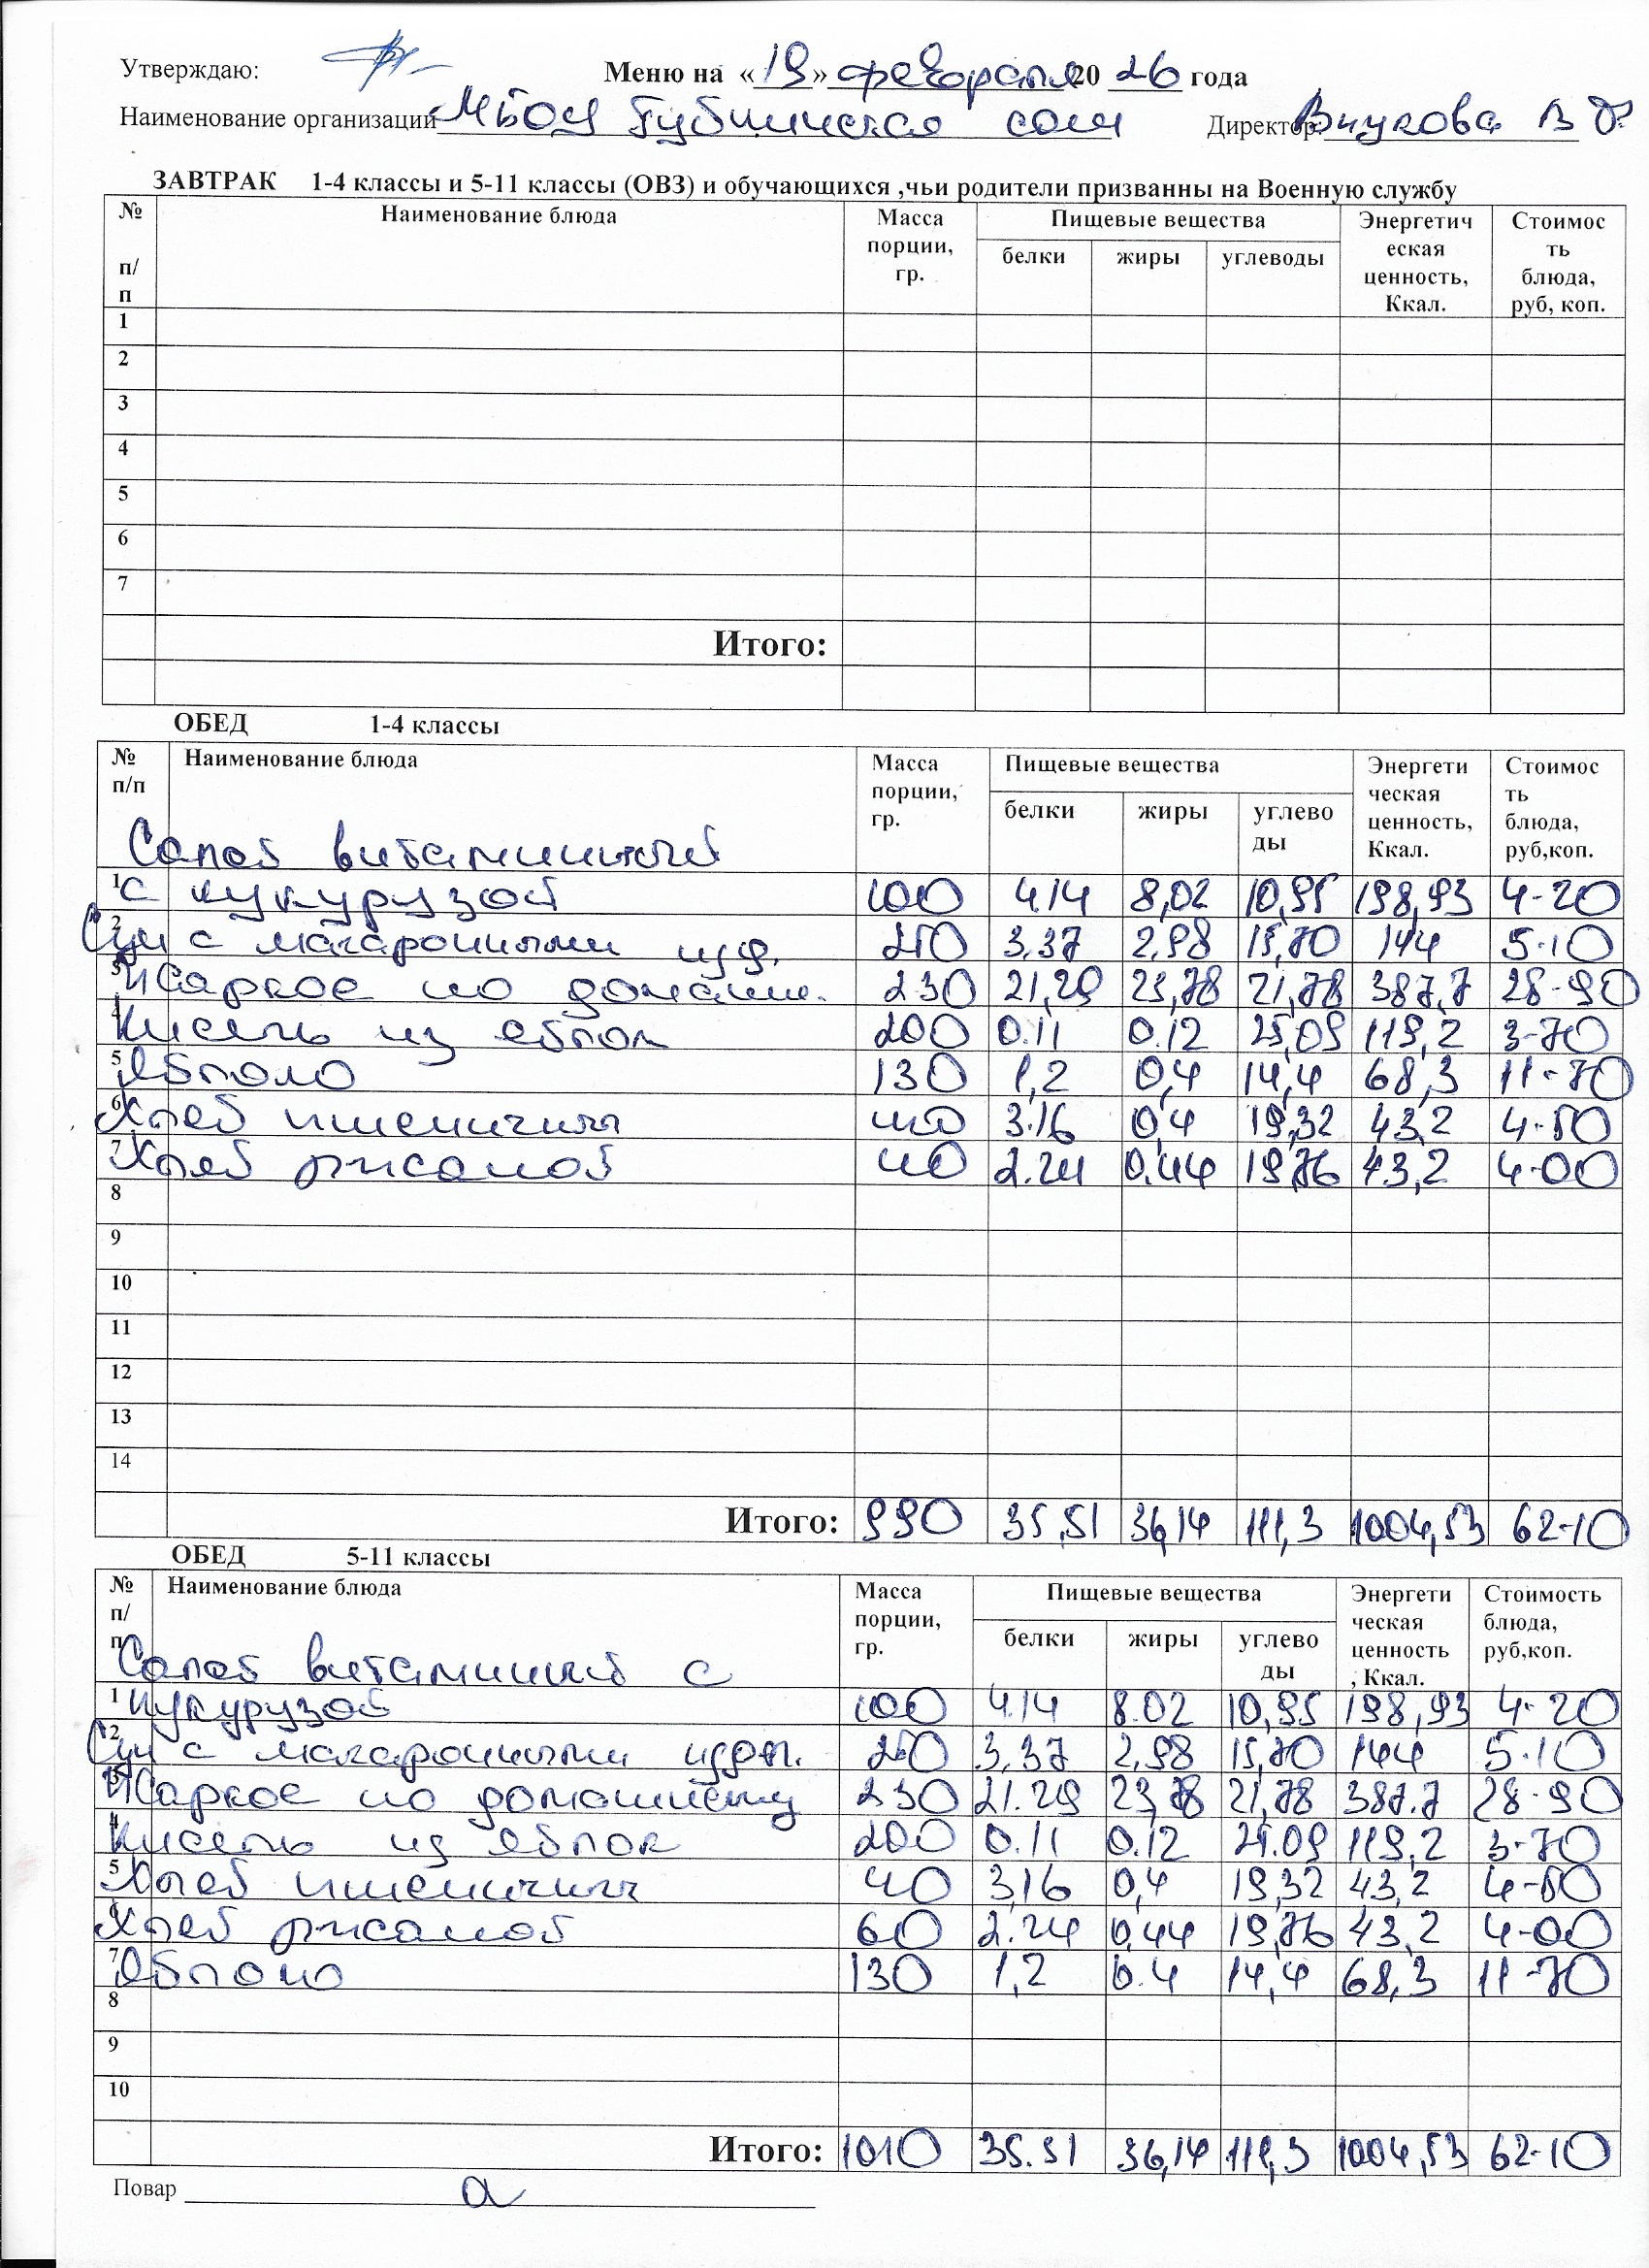 Утверждаю:
Меню на «19» февраля 2026 года
Наименование организации МБОУ сош Директор: Внукова В Ф
ЗАВТРАК 1-4 классы и 5-11 классы (ОВЗ) и обучающихся ,чьи родители призванны на Военную службу
№ п/п Наименование блюда Масса порции, гр. Пищевые вещества белки жиры углеводы Энергетическая ценность, Ккал. Стоимость блюда, руб, коп.
1
2
3
4
5
6
7
Итого:
ОБЕД 1-4 классы
№ п/п Наименование блюда Масса порции, гр. Пищевые вещества белки жиры углеводы Энергетическая ценность, Ккал. Стоимость блюда, руб,коп.
Салат витаминный
1 с кукурузой 100 4.14 8,02 10,95 198,93 4-20
2 Суп с макаронными изд. 250 3.37 2,98 15,70 144 5-10
3 Жаркое по домашн. 230 21,29 23,78 21,78 387,7 28-90
4 Кисель из яблок 200 0.11 0.12 25,09 119,2 3-70
5 Яблоко 130 1,2 0,4 14,4 68,3 11-70
6 Хлеб пшеничный 40 3.16 0,4 19,32 43,2 4-50
7 Хлеб ржаной 40 2.24 0,44 19,76 43,2 4-00
8
9
10
11
12
13
14
Итого: 990 35,51 36,14 111,3 1004,53 62-10
ОБЕД 5-11 классы
№ п/п Наименование блюда Масса порции, гр. Пищевые вещества белки жиры углеводы Энергетическая ценность, Ккал. Стоимость блюда, руб,коп.
Салат витаминный с
1 кукурузой 100 4.14 8.02 10,95 198,93 4-20
2 Суп с макаронными издел. 250 3,37 2,98 15,70 144 5-10
3 Жаркое по домашнему 230 21.29 23,78 21,78 387.7 28-90
4 Кисель из яблок 200 0.11 0.12 25.09 119,2 3-70
5 Хлеб пшеничный 40 3,16 0,4 19,32 43,2 4-50
6 Хлеб ржаной 60 2.24 0,44 19,76 43,2 4-00
7 Яблоко 130 1,2 0.4 14,4 68,3 11-70
8
9
10
Итого: 1010 35.51 36,14 111,3 1004,53 62-10
Повар